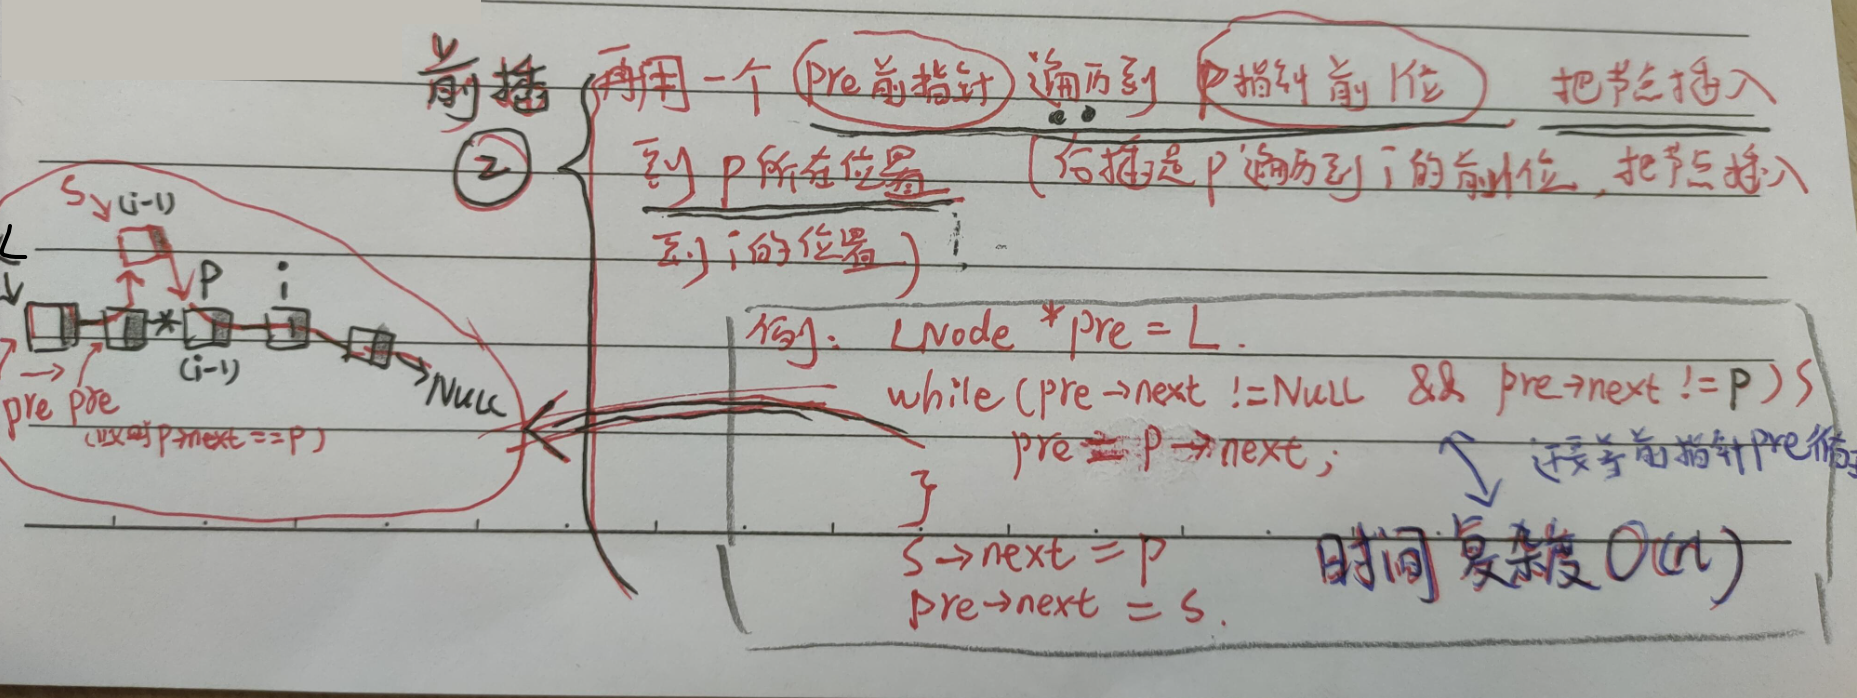 前插 ② 再用一个 pre前指针 遍历到 P指针前1位 把节点插入
到P所在位置 (后插是P遍历到i的前1位,把节点插入
到i的位置)
S (i-1)
L
P i
(i-1)
NULL
pre pre
P→next==P)
例: LNode *pre = L.
while (pre→next !=NULL && pre→next != P) {
pre = P→next;
}
S→next = P
pre→next = S.
前指针pre
时间复杂度 O(n)